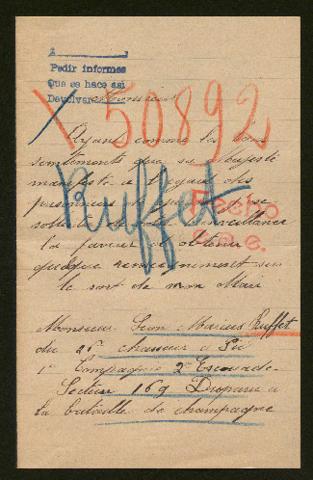 Pedir informes
Que se hace así
Devolver
Monsieur
50892
Ayant connu les bons
sentiments que sa Majesté
manifeste à l'égard des
Ruffet
Fecho
sollicite
la faveur d'obtenir
quelque renseignement sur
le sort de mon Mari
Monsieur Leon Marius Ruffet
du 26e chasseur à Pié
1e Compagnie 2e Escouade
Secteur 169 Disparu a
la bataille de champagne